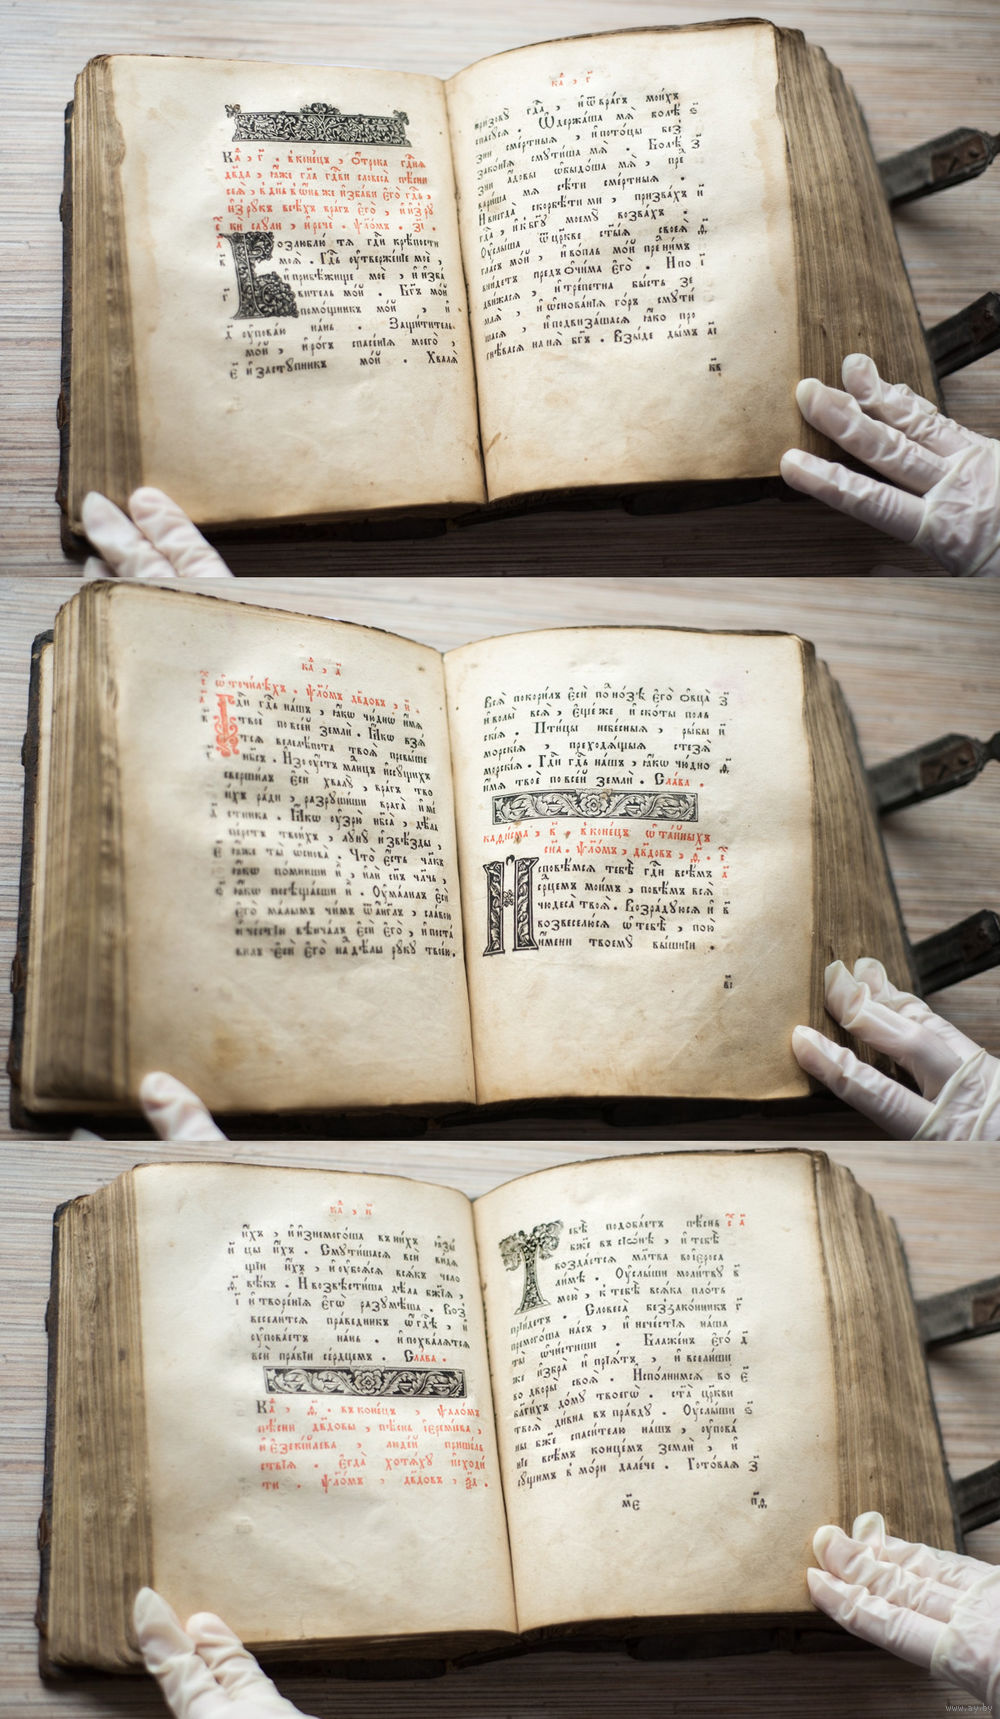 Ка҃ , г҃ . в̾конецъ , ѿрока гдⷭ҇нѧ
дв҃да , ꙗ҆́же гл҃а гдⷭ҇ви словеса̀ пѣсни
сеѧ̀ , в̾дн҃ь в̾ѡ҆́ньже и҆зба́ви є҆го̀ гдⷭ҇ь ,
и҆з̾рꙋкъ всѣхъ врагъ є҆гѡ̀ , и҆ и҆з̾рꙋ
ки̑ саꙋли , и҆ рече̑ . ѱало́мъ . з҃і .
Возлюблю̀ тѧ гдⷭ҇и крѣ́пости
моѧ̀ . Гдⷭ҇ь ᲂу҆твержє́нїе моѐ ,
и҆ прибѣ́жище моѐ , и҆ и҆зба
витель мо́й . Бг҃ъ мо́й
помо́щникъ мо́й , и҆
ᲂу҆пова́ю на́нь . Защи́титель
мо́й , и҆ ро́гъ спасе́нїѧ моегѡ̀ ,
и҆ застꙋ́пникъ мо́й . Хвалѧ̀
ка҃ , г҃
призовꙋ̀ гдⷭ҇а , и҆ ѿ вра́гъ мои́хъ
спасꙋ́сѧ . Ѡ҆держа́ша мѧ̀ болѣ
зни сме́ртныѧ , и҆ пото́цы без̾
зако́нїѧ смѧто́ша мѧ̀ . Болѣ
зни а҆́довы ѡ҆быдо́ша мѧ̀ , пре
вари́ша мѧ сѣ́ти сме́ртныѧ .
И҆ внегда̀ скорбѣ́ти ми , призва́хъ
гдⷭ҇а , и҆ к̾ бг҃ꙋ моемꙋ̀ возва́хъ .
Оу҆слы́ша ѿ це́ркве ст҃ы́ѧ своеѧ̀
гла́съ мо́й , и҆ во́пль мо́й пре́дним̾
вни́детъ пред̾ ѻ҆чи́ма є҆гѡ̀ . И҆ по
дви́жасѧ , и҆ тре́петна бы́сть зе
млѧ̀ , и҆ ѡ҆снова́нїѧ го́ръ смꙋти
шасѧ , и҆ подвиза́шасѧ ꙗ҆́ко про
гнѣ́васѧ на нѧ̀ бг҃ъ . Взы́де ды́мъ
кв
ка҃ , а҃
ѡ҆ точи́лѣхъ . ѱало́мъ дв҃довъ , и҃ .
Гдⷭ҇и гдⷭ҇ь на́шъ , ꙗ҆́кѡ чю́дно и҆́мѧ
твоѐ по все́й землѝ . Ꙗ҆́кѡ взѧ́
тсѧ велелѣ́пота твоѧ̀ превы́ше
нб҃съ . И҆з̾ ᲂу҆́стъ младе́нецъ и҆ ссꙋ́щихъ
соверши́лъ є҆сѝ хвалꙋ̀ , вра́гъ тво
и́хъ ра́ди , разрꙋши́ши врага̀ и҆ ме
стника . Ꙗ҆́кѡ ᲂу҆зрю̀ нб҃са̀ , дѣла̀
пе́рстъ твои́хъ , лꙋнꙋ̀ и҆ ѕвѣ́зды ,
ꙗ҆̀же ты̀ ѡ҆снова̀ . Что̀ є҆́сть чл҃къ
ꙗ҆́кѡ по́мниши и҆̀ , и҆лѝ сн҃ъ чл҃чь ,
ꙗ҆́кѡ посѣща́еши и҆̀ . Оу҆ма́лилъ є҆сѝ
є҆го̀ ма́лымъ чи́мъ ѿ а҆́гг҃лъ , сла́вою
и҆ че́стїю вѣнча́лъ є҆сѝ є҆го̀ , и҆ поста́
вилъ є҆сѝ є҆го̀ над̾ дѣ́лы рꙋкꙋ̀ твоє́ю ,
Всѧ̀ покори́лъ є҆сѝ под̾ но́зѣ є҆гѡ̀ ѻ҆́вцѧ
и҆ волы̀ всѧ̀ , є҆ще́ же и҆ скоты̀ поль
скі́ѧ . Пти́цы небє́сныѧ , ры́бы
морскі́ѧ , преходѧ́щыѧ стезѧ̀
морскі́ѧ . Гдⷭ҇и гдⷭ҇ь на́шъ , ꙗ҆́кѡ чю́дно
и҆́мѧ твоѐ по все́й землѝ . Сла́ва .
каѳи́сма , в҃ , в̾коне́цъ ѡ҆ та́йныхъ
сн҃а . ѱало́мъ , дв҃довъ , ѳ҃ .
Исповѣ́мсѧ тебѣ̀ гдⷭ҇и всѣ́мъ
се́рдцемъ мои́мъ , повѣ́мъ всѧ̀
чюдеса̀ твоѧ̀ . Возра́дꙋюсѧ и҆
возвеселю́сѧ ѡ҆ тебѣ̀ , пою̀
и҆́мени твоемꙋ̀ вы́шнїи .
ка҃ , и҃
и́хъ , и҆ и҆знемого́ша в̾ни́хъ ꙗ҆зы́
цы и҆́хъ . Смꙋти́шасѧ всѝ ви́дѧ
щїи и҆́хъ , и҆ ᲂу҆боѧ́сѧ всѧ́къ чело
вѣ́къ . И҆ возвѣсти́ша дѣла̀ бж҃їѧ ,
и҆ творє́нїѧ є҆гѡ̀ разꙋмѣ́ша . Воз̾
весели́тсѧ пра́ведникъ ѡ҆ гдⷭ҇ѣ , и҆
ᲂу҆пова́етъ на́нь . и҆ похва́лѧтсѧ
всѝ пра́вїи се́рдцемъ . Сла́ва .
Ка҃ , ѳ҃ . в̾коне́цъ , ѱало́мъ
пѣ́сни дв҃довы , пѣ́снь і҆еремі́ева ,
и҆ і҆езекі́илева , люде́й прише́ль
ствїѧ . Є҆гда̀ хотѧ́хꙋ и҆сходи́
ти . ѱало́мъ , дв҃довъ , ѯ҃д .
Тебѣ̀ подоба́етъ пѣ́снь
бж҃е в̾ сїѡ́нѣ , и҆ тебѣ̀
возда́стсѧ мл҃тва во і҆єроса
ли́мѣ . Оу҆слы́ши моли́твꙋ
мою̀ , к̾ тебѣ̀ всѧ́ка пло́ть
прїи́детъ . Словеса̀ без̾зако́нникъ
премого́ша на́съ , и҆ нечє́стїѧ на́ша
ты̀ ѡ҆чи́стиши . Блаже́нъ є҆го́
же и҆збра̀ и҆ прїѧ́тъ , и҆ всели́ши
во дво́ры своѧ̀ . И҆спо́лнимсѧ во
благи́хъ до́мꙋ твоегѡ̀ . ст҃а̀ цр҃кви
твоѧ̀ ди́вна в̾ пра́вдꙋ . Оу҆слы́ши
ны̀ бж҃е спаси́телю на́шъ , ᲂу҆пова́
нїе всѣ́мъ конце́мъ землѝ , и҆
сꙋ́щимъ в̾ мо́ри дале́че . Гото́ваѧ
ме пѳ
www.ay.by